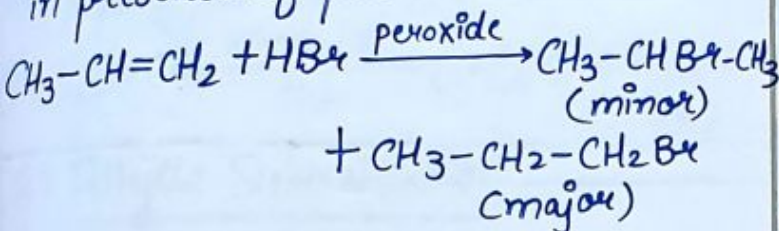 in presence of
CH3-CH=CH2 +HBr peroxide → CH3-CHBr-CH3
(minor)
+ CH3-CH2-CH2Br
(major)